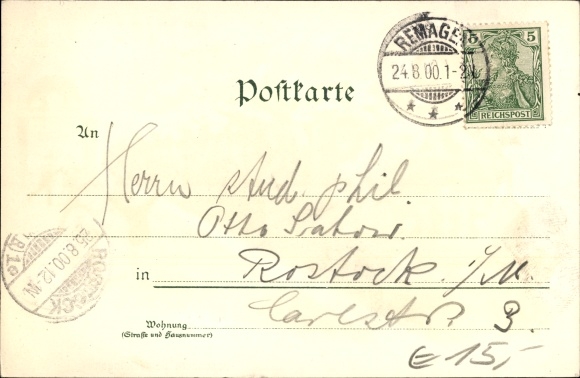 REMAGEN
24.8.00.1-2N
5
REICHSPOST
Postkarte
An
Herrn stud. phil.
Otto
in Rostock i/M.
Carlstr. 3.
Wohnung
(Straße und Hausnummer)
ROSTOCK
26.8.00.12
€ 15,-